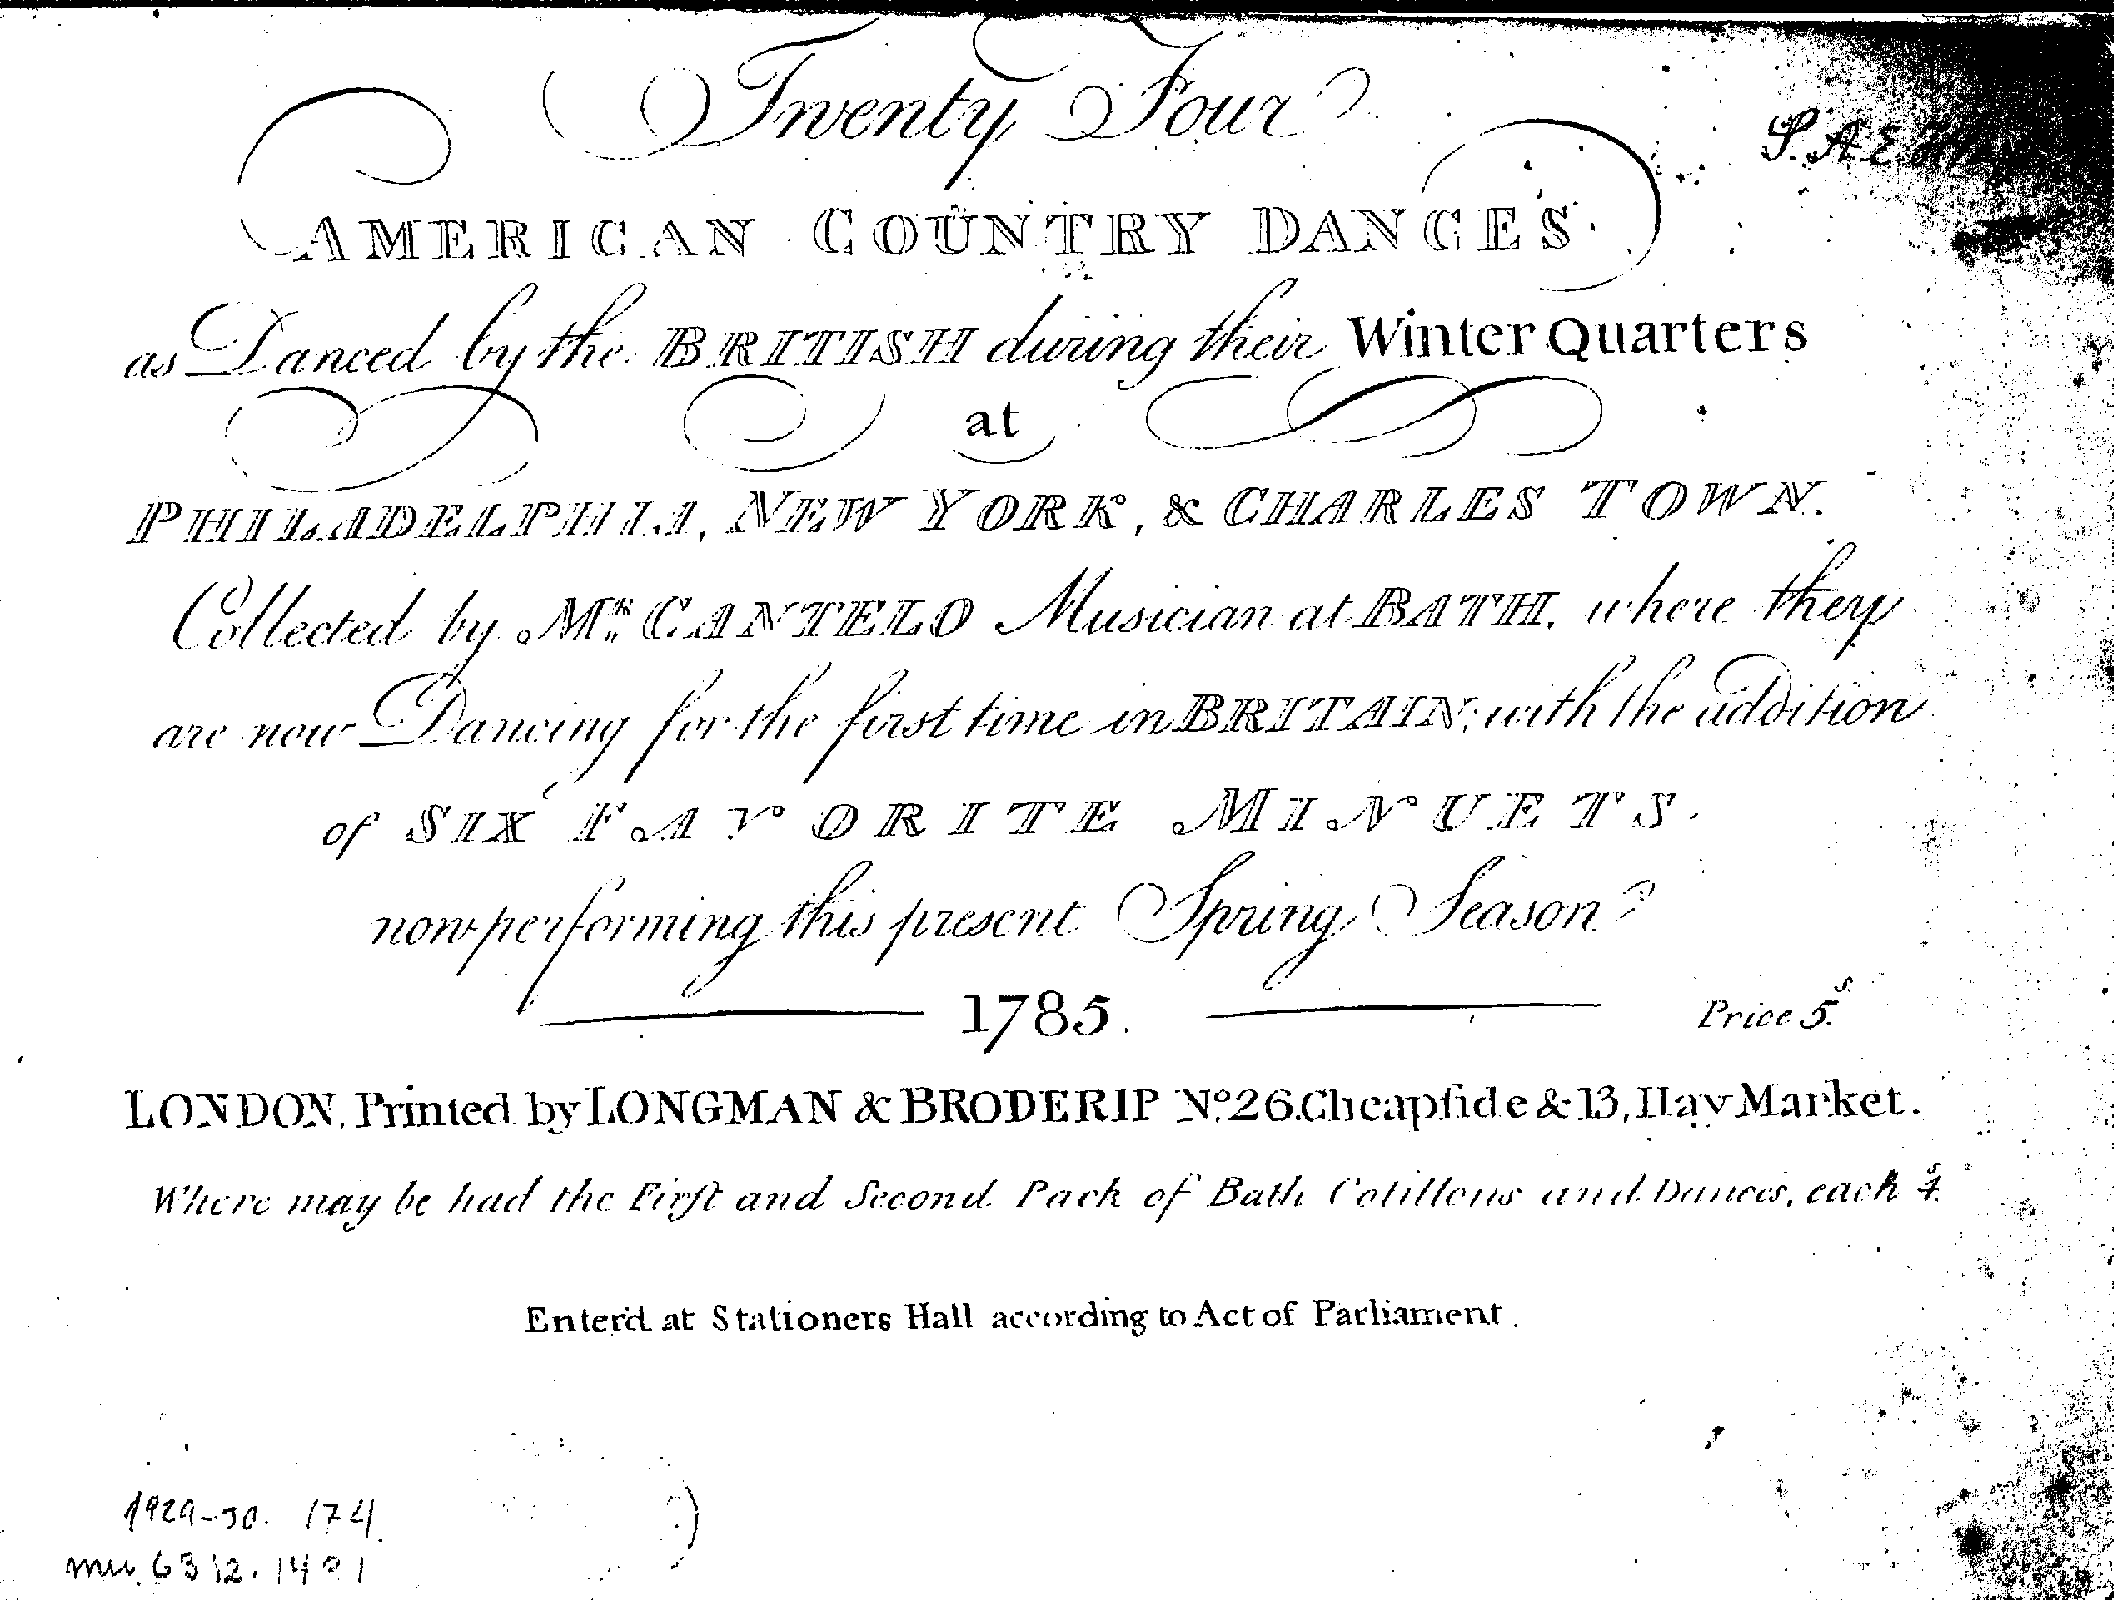 Twenty Four
AMERICAN COUNTRY DANCES
as Danced by the BRITISH during their Winter Quarters
at
PHILADELPHIA, NEW YORK, & CHARLES TOWN.
Collected by Mr. CANTELO Musician at BATH, where they
are now Dancing for the first time in BRITAIN; with the addition
of SIX FAVORITE MINUETS.
now performing this present Spring Season
1785.
Price 5s.
LONDON, Printed by LONGMAN & BRODERIP No. 26. Cheapſide & 13, Hay Market.
Where may be had the Firſt and Second Pack of Bath Cotillons and Dances, each
Enter'd at Stationers Hall according to Act of Parliament.
1929-30. 174
mu. 6312.1401